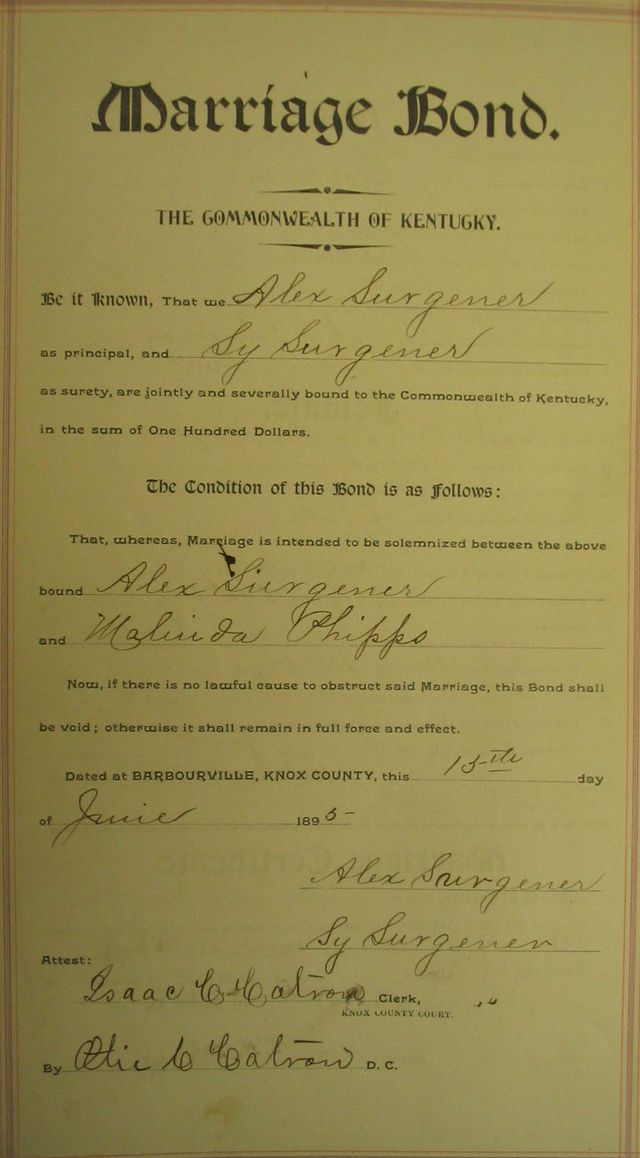 Marriage Bond.
THE COMMONWEALTH OF KENTUCKY.
Be it Known, That we Alex Surgener
as principal, and Sy Surgener
as surety, are jointly and severally bound to the Commonwealth of Kentucky,
in the sum of One Hundred Dollars.
The Condition of this Bond is as Follows:
That, whereas, Marriage is intended to be solemnized between the above
bound Alex Surgener
and Malinda Phipps
Now, if there is no lawful cause to obstruct said Marriage, this Bond shall
be void; otherwise it shall remain in full force and effect.
Dated at BARBOURVILLE, KNOX COUNTY, this 15th day
of June 1895-
Alex Surgener
Sy Surgener
Attest:
Isaac C Catron Clerk, "
KNOX COUNTY COURT.
By C Catron D. C.